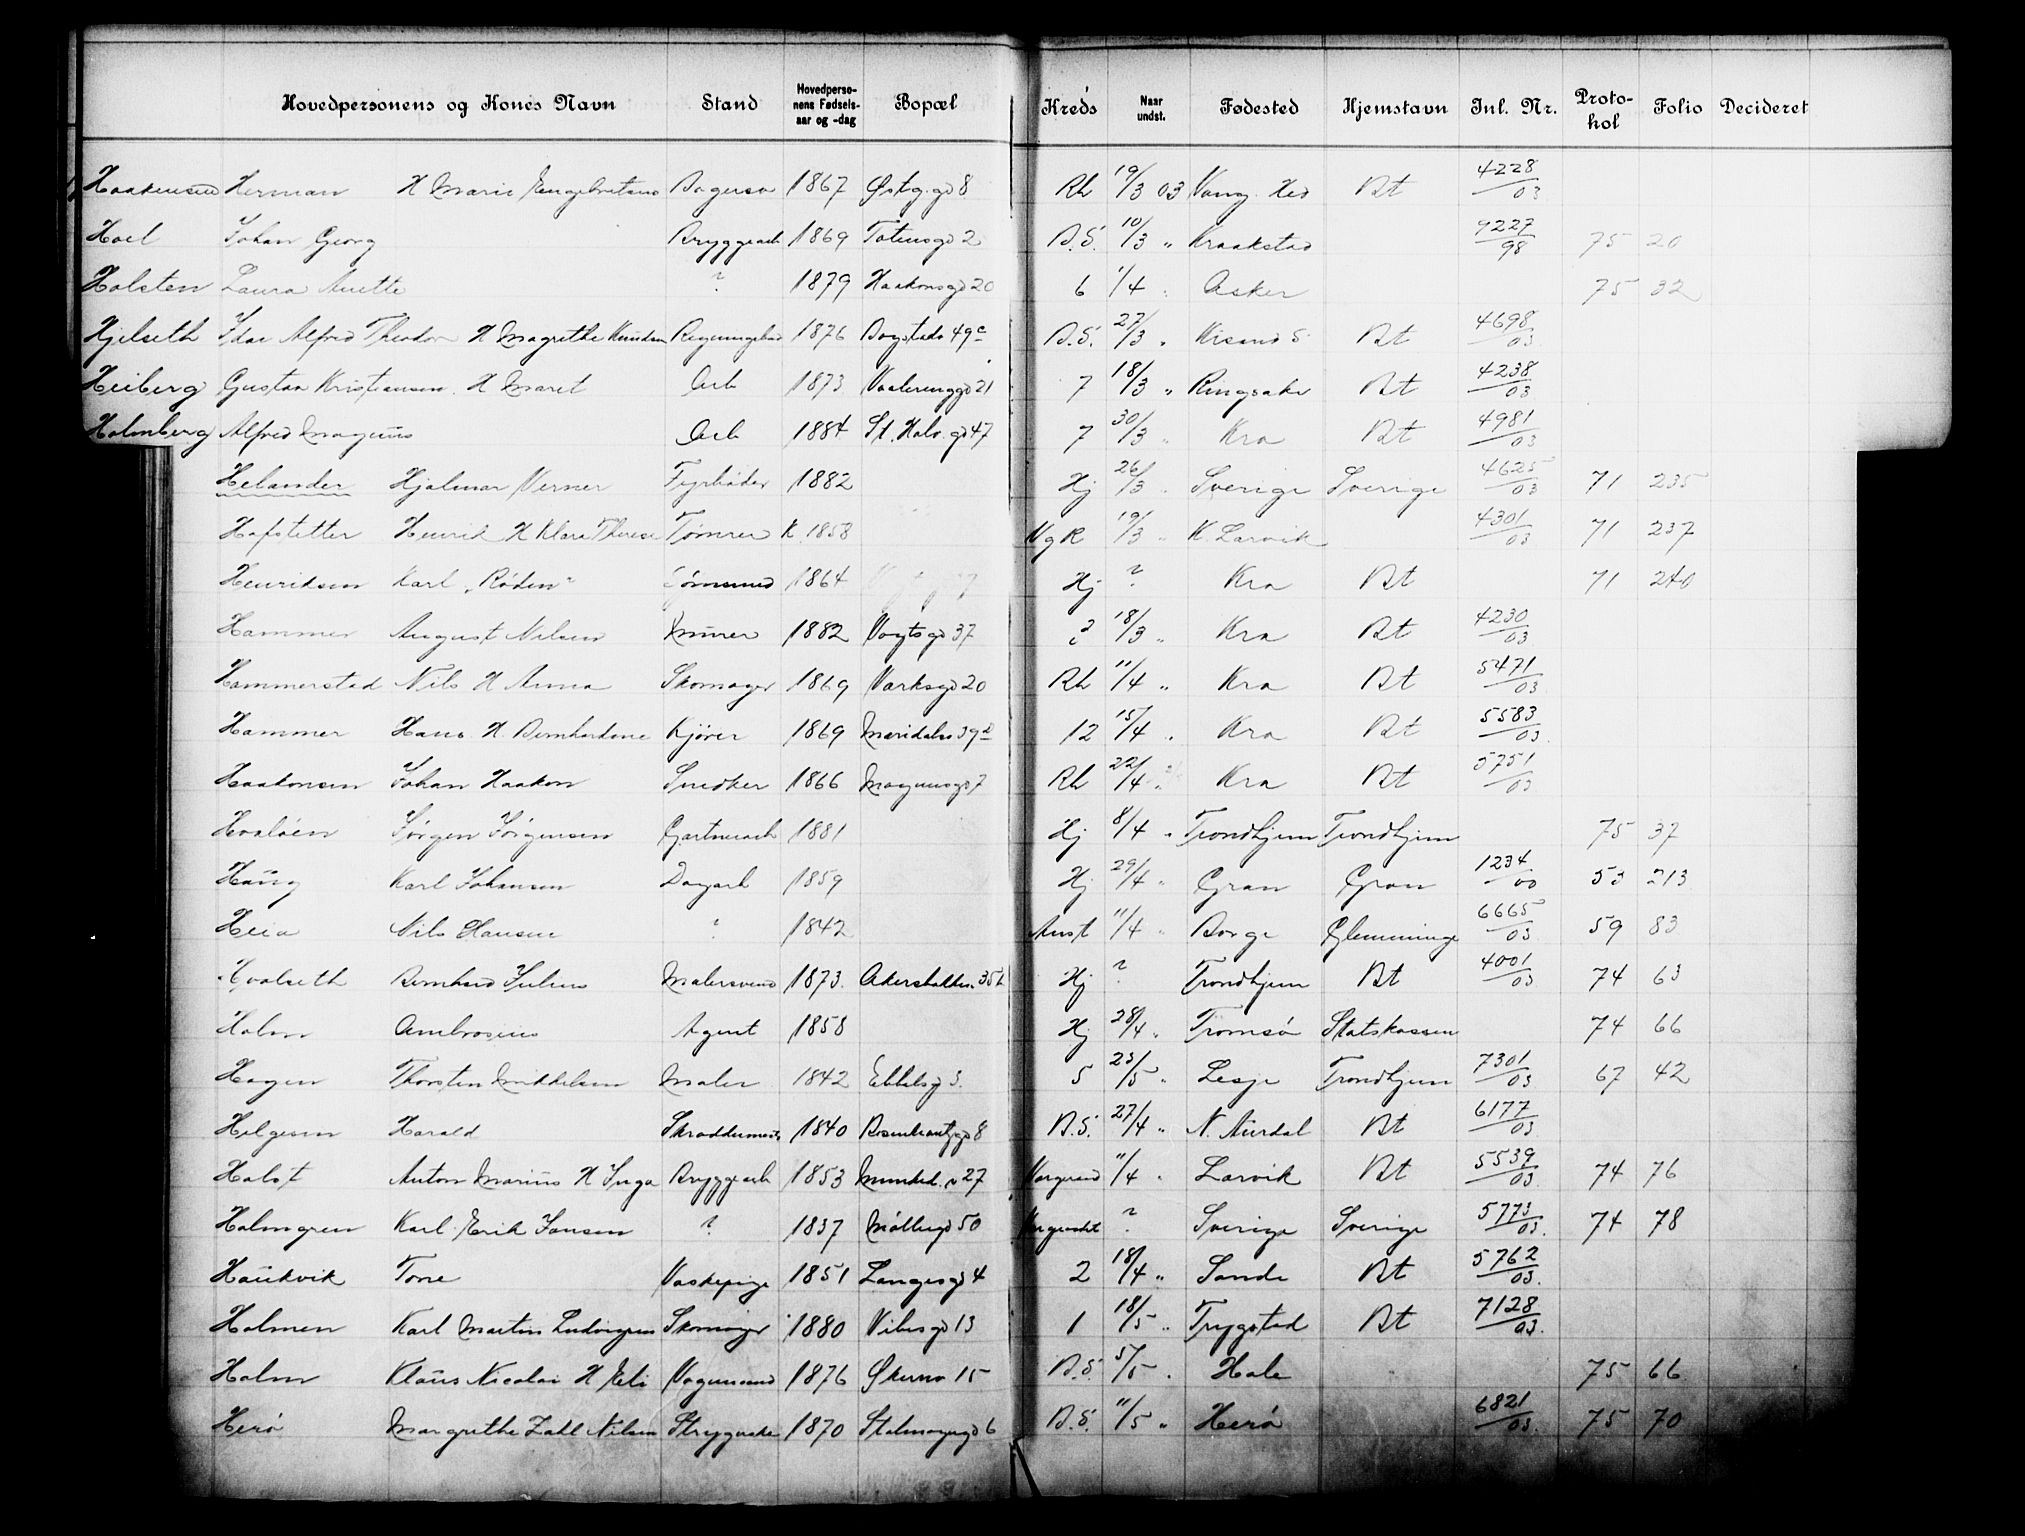 Hovedpersonens og Kones Navn Stand Hovedpersonens Fødselsaar og -dag Bopæl Kreds Naar undst. Fødested Hjemstavn Inl. Nr. Protokol Folio Decideret
Haakensen Herman H Marie Engebretsen 1867 Østg.gd 8 Rh 19/3 03 Vang. Hed Bt 4228/03
Hoel Johan Georg Bryggearb 1869 Totensgd 2 B.S. 10/3 „ Kraakstad 9227/98 75 20
Holsten Laura Anette ? 1879 Haakonsgd 20 6 1/4 „ Asker 75 32
Hjelseth Idar Alfred Theodor H Magrethe Knudsen 1876 Bogstadv 49c B.S. 27/3 „ Krsund S. Bt 4698/03
Heiberg Gustav Kristiansen. H Maret Arb 1873 Vaalerenggd 21 7 18/3 „ Ringsaker Bt 4238/03
Holmberg Alfred Magnus Arb 1884 St. Halv. gd 47 7 30/3 „ Kra Bt 4981/03
Helander Hjalmar Verner Fyrbøder 1882 Hj 26/3 „ Sverige Sverige 4625/03 71 235
Hofstetter Henrik H Klara Therese Tømrer K. 1858 Vg R 19/3 „ K. Larvik 4301/03 71 237
Henriksen Karl „Røden“ 1864 Hj ? Kra Bt 71 240
Hammer August Nilsen Murer 1882 Vogtsgd 37 2 18/3 „ Kra Bt 4230/03
Hammerstad Nils H Anna Skomager 1869 Verksgd 20 Rh 11/4 „ Kra Bt 5471/03
Hammer Hans H. Bernhardine Kjører 1869 Maridalsv 39d 12 15/4 „ Kra Bt 5583/03
Haakonsen Johan Haakon Snedker 1866 Magnusgd 7 Rh 22/4 „ Kra Bt 5751/03
Hvaløen Jørgen Jørgensen Gartnerarb 1881 Hj 8/4 „ Trondhjem Trondhjem 75 37
Haug Karl Johansen Dagarb 1859 Hj 29/4 „ Gran Gran 1234/00 53 213
Heia Nils Hansen ? 1842 Anst 11/4 „ Borge Glemminge 6665/03 59 83
Hvalseth Bernhard Julius Malersvend 1873. Akersbakken 35b Hj ? Trondhjem Bt 4001/03 74 63
Holm Ambrosius Agent 1858 Hj 28/4 „ Tromsø Statskassen 74 66
Hagen Thorsten Mikkelsen Maler 1842 Ebbelsgd 3. 5 23/5 „ Lesje Trondhjem 7301/03 67 42
Helgesen Harald Skreddermester 1840 Rosenkrantzgd 8 B.S. 27/4 „ N. Aurdal Bt 6177/03
Holst Anton Marius H Inga Bryggearb 1853 Munked. v 27 11/4 „ Larvik Bt 5539/03 74 76
Holmgren Karl Erik Jonsen ? 1837 Møllergd 50 ? Sverige Sverige 5773/03 74 78
Haukvik Tone Vaskepige 1851 Langesgd 4 2 18/4 „ Sande Bt 5762/03
Holmen Karl Martin Ludvigsen Skomager 1880 Vibesgd 13 1 18/5 „ Trygstad Bt 7128/03
Holm Klaus Nicolai H Eli Vognmand 1876 Økernv 15 B.S. 5/5 „ Hole 75 66
Herø Margrethe Zahl Nilsen Strygerske 1870 Stolmagergd 6 B.S. 11/5 „ Herø 6821/03 75 70